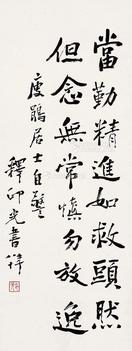 當勤精進如救頭然
但念無常慎勿放逸
庱鵑居士自警
釋印光書